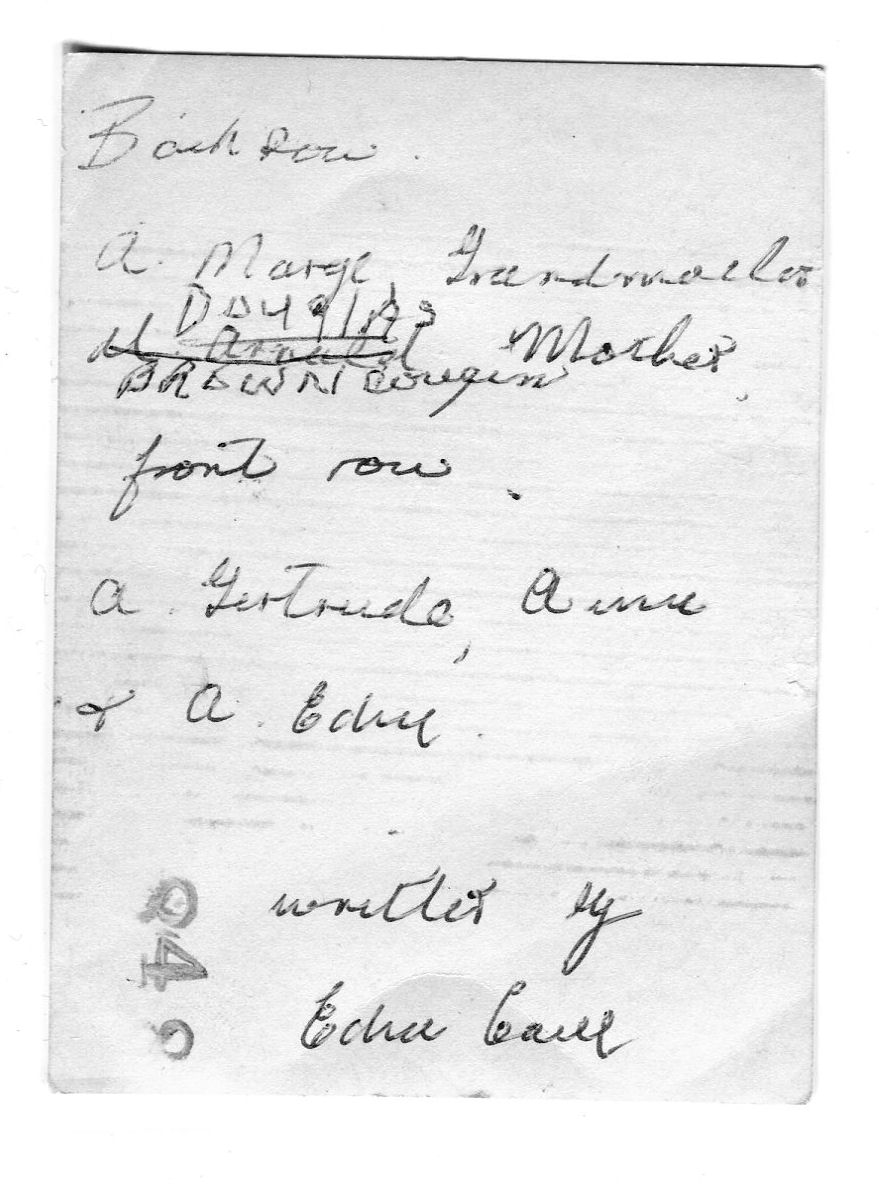 Back Row.
A. Marge Grandmother
DOUGLAS
A. Arnold Mother,
BROWN Cousin
front row.
A. Gertrude, Anne
& A. Edne.
written by
Edna
040